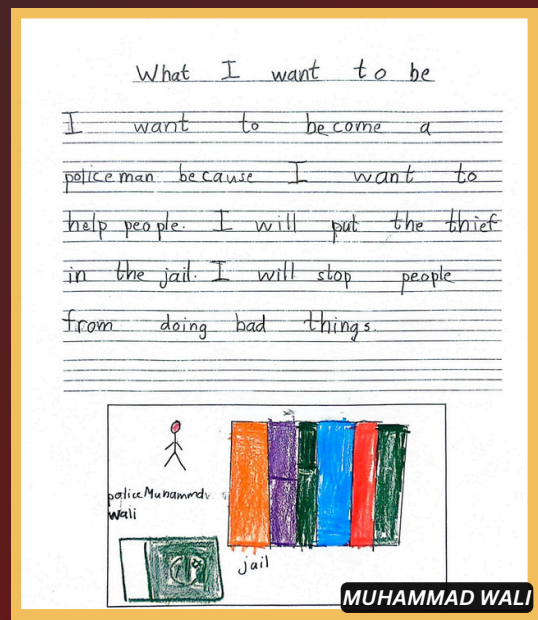 What I want to be
I want to become a
policeman because I want to
help people. I will put the thief
in the jail. I will stop people
from doing bad things.
police Muhammd
wali
jail
MUHAMMAD WALI